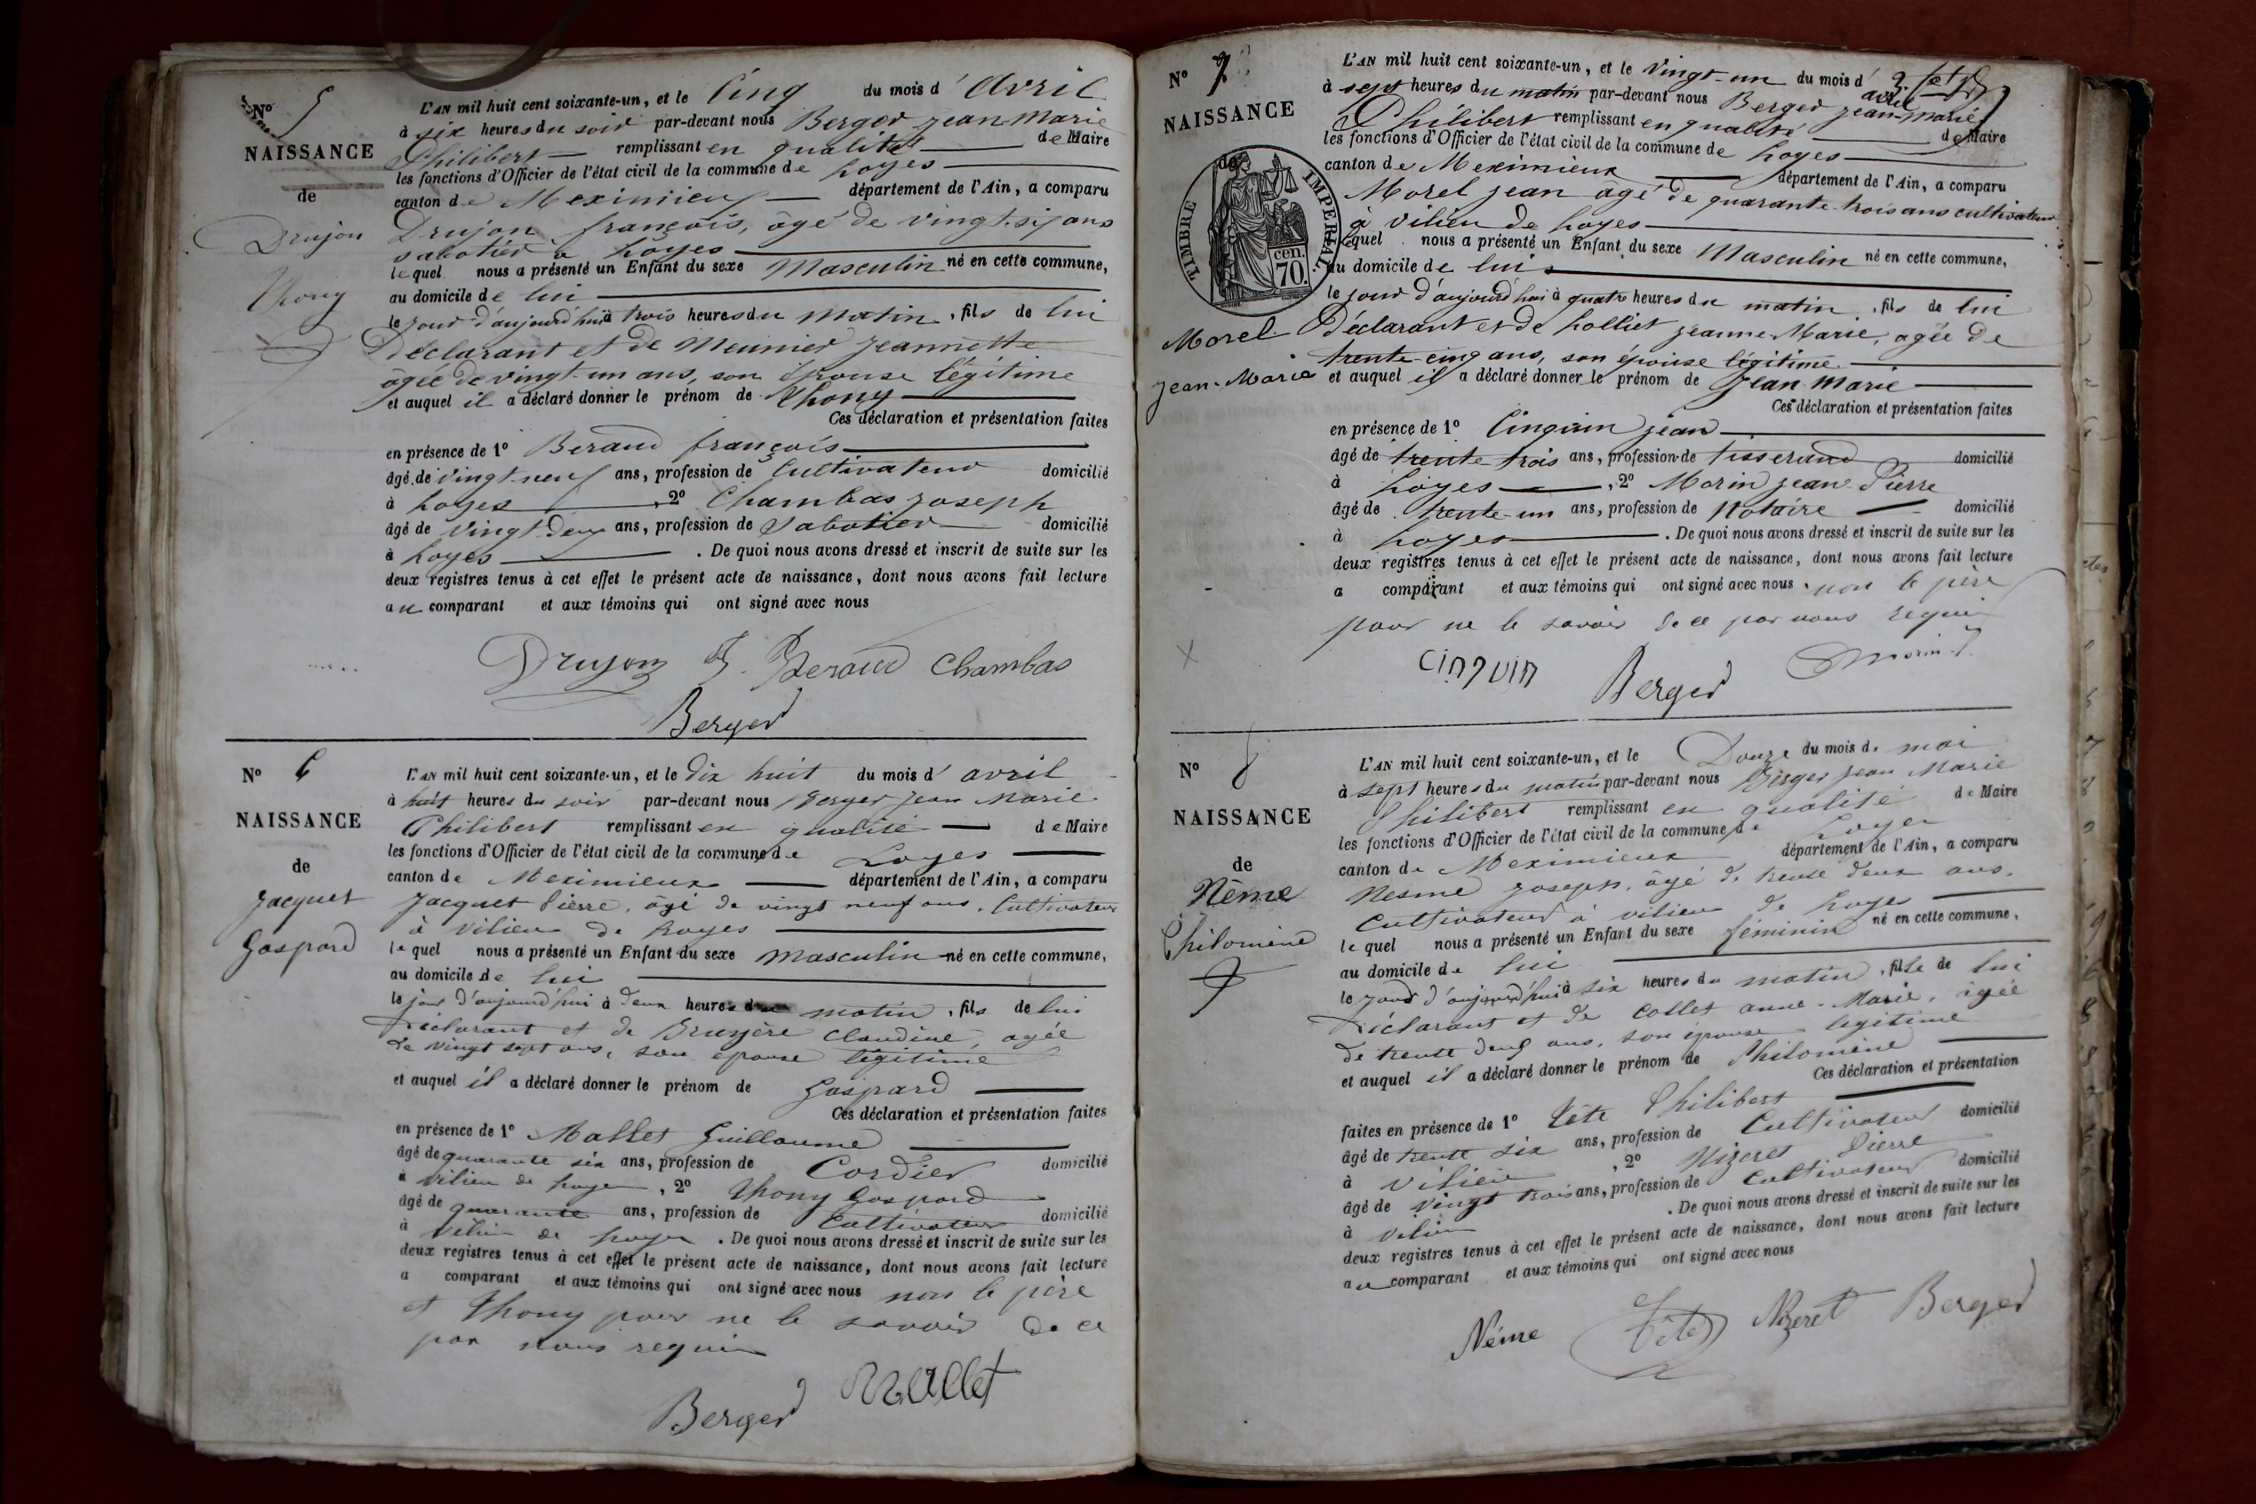 N° 5
NAISSANCE
de
Drujon
Thony
L'AN mil huit cent soixante-un, et le Cinq du mois d' Avril
à six heures du soir par-devant nous Berger jean Marie
Philibert remplissant en qualité de Maire
les fonctions d'Officier de l'état civil de la commune de Loyes
canton de Meximieux département de l'Ain, a comparu
Drujon françois, âgé de vingt-six ans
sabotier a Loyes
lequel nous a présenté un Enfant du sexe Masculin né en cette commune,
au domicile de lui
le jour d'aujourd'hui à trois heures du Matin, fils de lui
Déclarant et de Meunier jeannette
âgée de vingt-un ans, son épouse légitime
et auquel il a déclaré donner le prénom de Thony
Ces déclaration et présentation faites
en présence de 1° Beraud françois
âgé de vingt-neuf ans, profession de Cultivateur domicilié
à Loyes, 2° Chambas joseph
âgé de vingt-deux ans, profession de Sabotier domicilié
à Loyes. De quoi nous avons dressé et inscrit de suite sur les
deux registres tenus à cet effet le présent acte de naissance, dont nous avons fait lecture
au comparant et aux témoins qui ont signé avec nous
Drujon F. Beraud Chambas
Berger
N° 6
NAISSANCE
de
Jacquet
Gaspard
L'AN mil huit cent soixante-un, et le dix huit du mois d' avril
à huit heures du soir par-devant nous Berger Jean Marie
Philibert remplissant en qualité de Maire
les fonctions d'Officier de l'état civil de la commune de Loyes
canton de Meximieux département de l'Ain, a comparu
Jacquet Pierre, âgé de vingt neuf ans, Cultivateur
à Vilieu de Loyes
lequel nous a présenté un Enfant du sexe Masculin né en cette commune,
au domicile de lui
le jour d'aujourd'hui à deux heures du matin, fils de lui
Déclarant et de Bruyère Claudine, agée
de vingt sept ans, son épouse légitime
et auquel il a déclaré donner le prénom de Gaspard
Ces déclaration et présentation faites
en présence de 1° Mallet Guillaume
âgé de quarante six ans, profession de Cordier domicilié
à Vilieu de Loyes, 2° Thony Gaspard
âgé de quarante ans, profession de Cultivateur domicilié
à Vilieu de Loyes. De quoi nous avons dressé et inscrit de suite sur les
deux registres tenus à cet effet le présent acte de naissance, dont nous avons fait lecture
a comparant et aux témoins qui ont signé avec nous non le père
et Thony pour ne le savoir de ce
par nous requis
Berger Mallet
N° 7
NAISSANCE
de
TIMBRE IMPERIAL.
70. cen.
Morel
jean-Marie
L'AN mil huit cent soixante-un, et le vingt-un du mois d' avril
à sept heures du matin par-devant nous Berger jean-marie
Philibert remplissant en qualité de Maire
les fonctions d'Officier de l'état civil de la commune de Loyes
canton de Meximieux département de l'Ain, a comparu
Morel jean âgé de quarante-trois ans cultivateur
à vilieu de Loyes
lequel nous a présenté un Enfant du sexe Masculin né en cette commune,
au domicile de lui
le jour d'aujourd'hui à quatre heures du matin, fils de lui
Déclarant et de Holliet jeanne-Marie, agée de
trente-cinq ans, son épouse légitime
et auquel il a déclaré donner le prénom de jean marie
Ces déclaration et présentation faites
en présence de 1° Cinquin jean
âgé de trente trois ans, profession de tisserand domicilié
à Loyes, 2° Morin jean-Pierre
âgé de trente-un ans, profession de Notaire domicilié
à Loyes. De quoi nous avons dressé et inscrit de suite sur les
deux registres tenus à cet effet le présent acte de naissance, dont nous avons fait lecture
a comparant et aux témoins qui ont signé avec nous. non le père
pour ne le savoir de ce par nous requis
cinquin Berger Morin
N° 8
NAISSANCE
de
Nême
Philomène
L'AN mil huit cent soixante-un, et le Douze du mois de mai
à sept heures du matin par-devant nous Berger Jean Marie
Philibert remplissant en qualité de Maire
les fonctions d'Officier de l'état civil de la commune de Loyes
canton de Meximieux département de l'Ain, a comparu
Nesme joseph, âgé de trente deux ans,
Cultivateur à vilieu de Loyes
lequel nous a présenté un Enfant du sexe féminin né en cette commune,
au domicile de lui
le jour d'aujourd'hui à six heures du matin, fille de lui
Déclarant et de Collet anne-Marie, âgée
de trente deux ans, son épouse légitime
et auquel il a déclaré donner le prénom de Philomène
Ces déclaration et présentation
faites en présence de 1° Tête Philibert
âgé de trente six ans, profession de Cultivateur domicilié
à Vilieu, 2° Nizeret Pierre
âgé de vingt trois ans, profession de Cultivateur domicilié
à Vilieu. De quoi nous avons dressé et inscrit de suite sur les
deux registres tenus à cet effet le présent acte de naissance, dont nous avons fait lecture
au comparant et aux témoins qui ont signé avec nous
Nême Tête Nizeret Berger